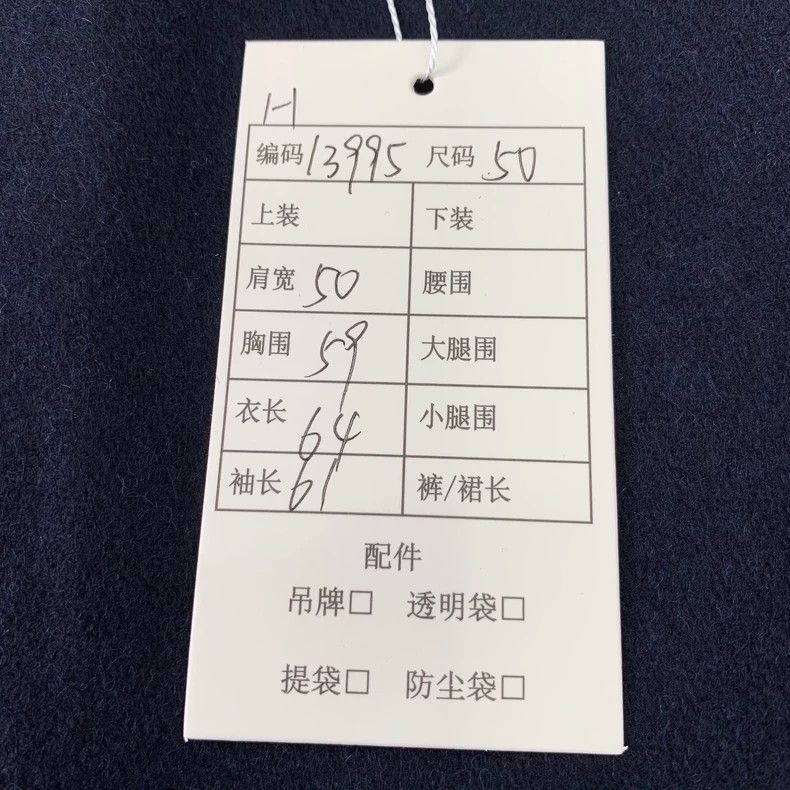 1-1
编码 13995 尺码 50
上装 下装
肩宽 50 腰围
胸围 59 大腿围
衣长 64 小腿围
袖长 61 裤/裙长
配件
吊牌□ 透明袋□
提袋□ 防尘袋□